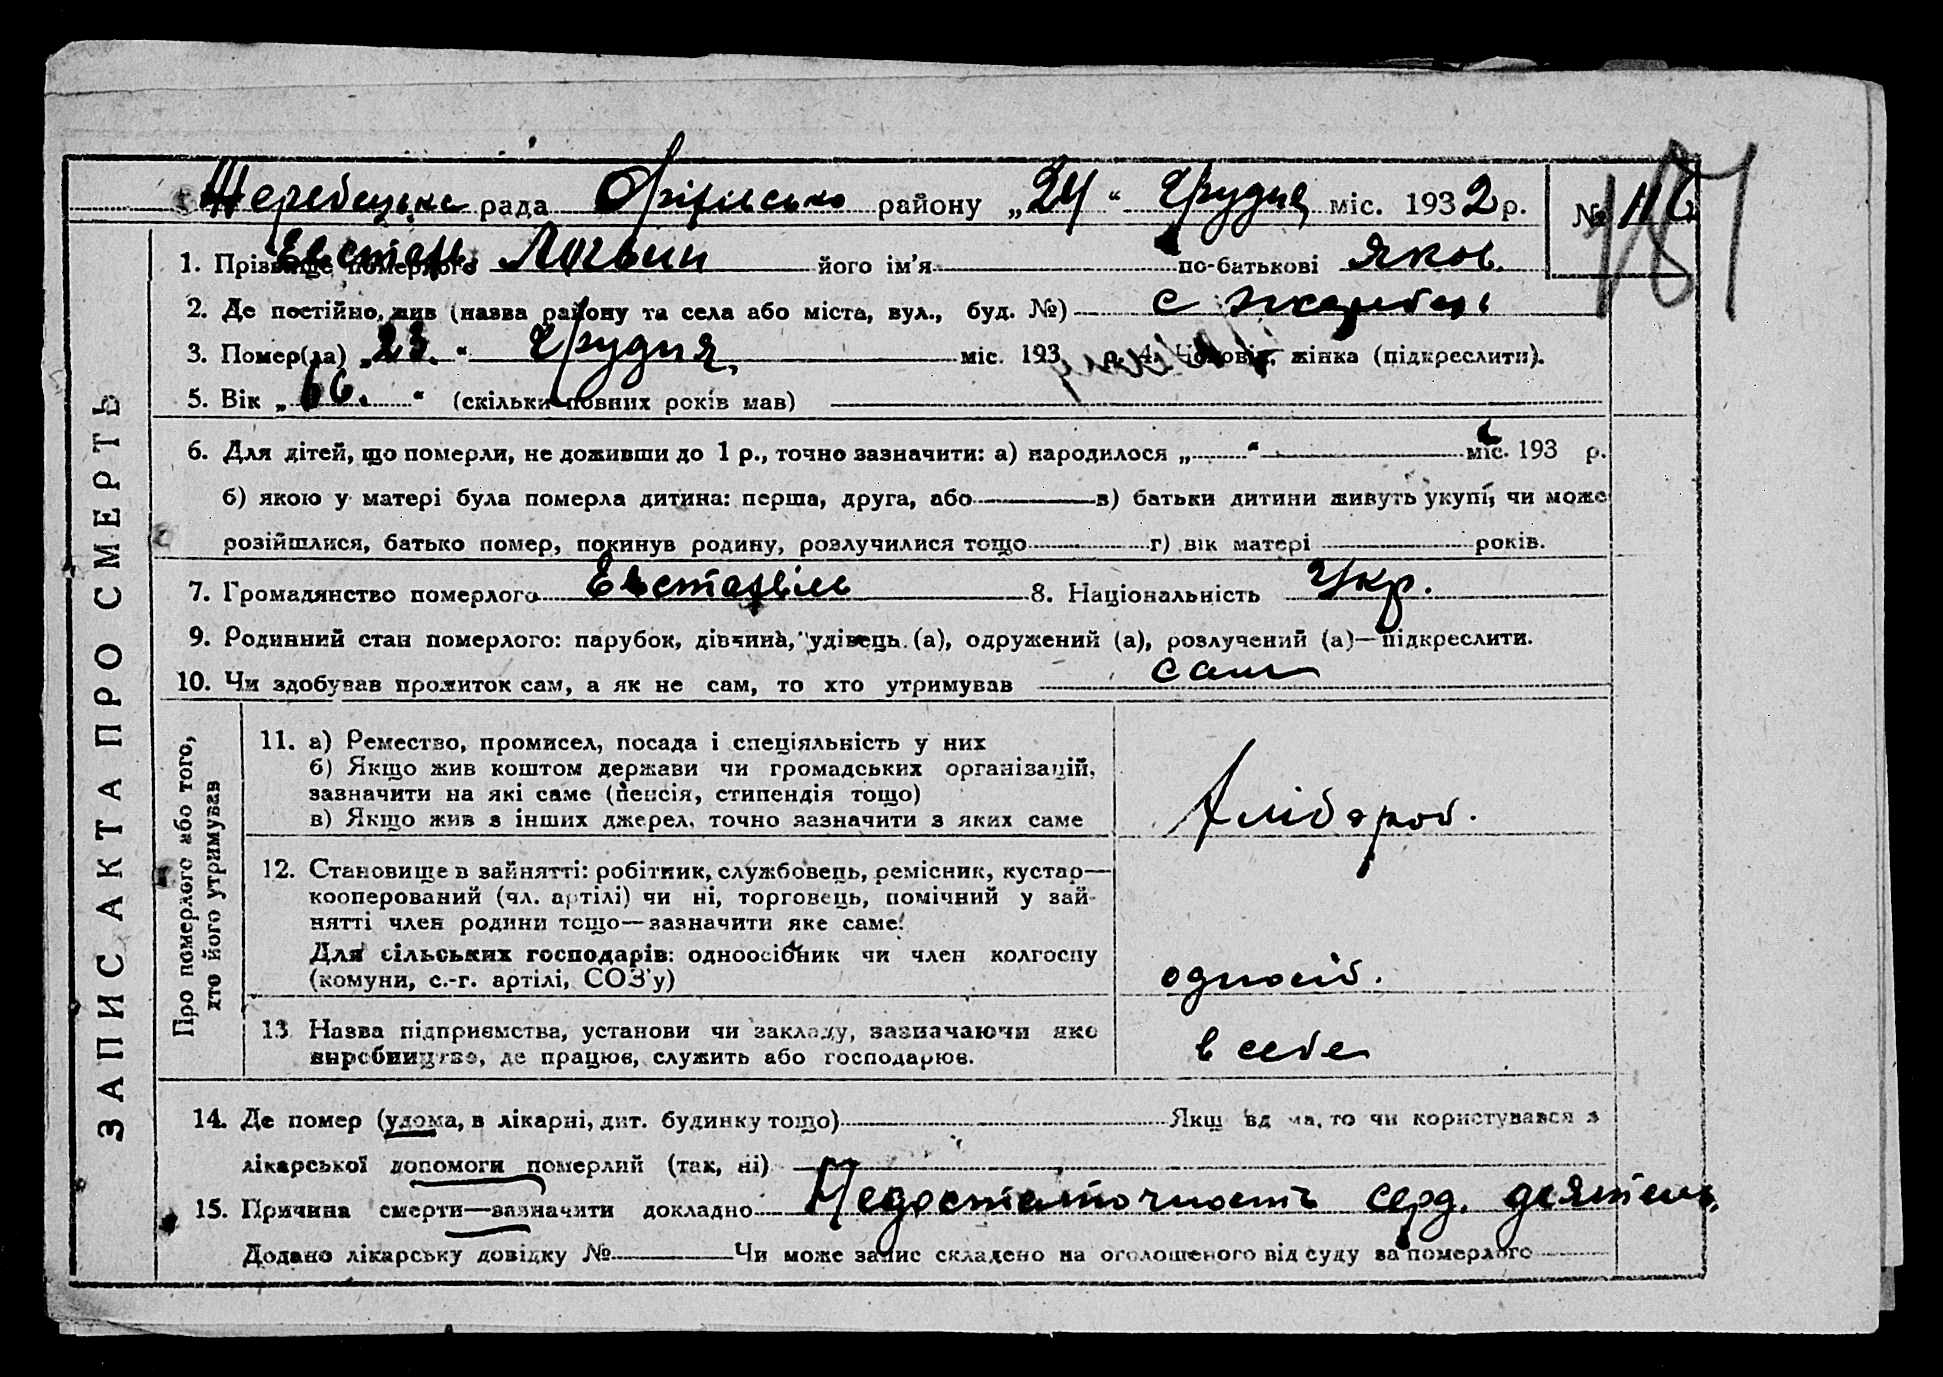 Жеребецька рада Оріхівсько району „24“ Грудня міс. 1932 р. № 116
187
1. Прізвище померлого Логвин його ім'я по-батькові Яков.
2. Де постійно жив (назва району та села або міста, вул., буд. №) с Жеребець
3. Помер(ла) „23.“ Грудня міс. 193 р. 4. Чоловік, жінка (підкреслити).
5. Вік „66.“ (скільки повних років мав)
6. Для дітей, що померли, не доживши до 1 р., точно зазначити: а) народилося „ “ міс. 193 р.
б) якою у матері була померла дитина: перша, друга, або в) батьки дитини живуть укупі, чи може
розійшлися, батько помер, покинув родину, розлучилися тощо г) вік матері років.
7. Громадянство померлого 8. Національність Укр.
9. Родинний стан померлого: парубок, дівчина, удівець (а), одружений (а), розлучений (а)—підкреслити.
10. Чи здобував прожиток сам, а як не сам, то хто утримував сам
ЗАПИС АКТА ПРО СМЕРТЬ
Про померлого або того,
хто його утримував
11. а) Ремество, промисел, посада і спеціяльність у них
б) Якщо жив коштом держави чи громадських організацій,
зазначити на які саме (пенсія, стипендія тощо)
в) Якщо жив з інших джерел, точно зазначити з яких саме
Хлібороб.
12. Становище в зайнятті: робітник, службовець, ремісник, кустар—
кооперований (чл. артілі) чи ні, торговець, помічний у зай-
нятті член родини тощо—зазначити яке саме.
Для сільських господарів: одноосібник чи член колгоспу
(комуни, с.-г. артілі, СОЗ'у)
односіб.
13 Назва підприємства, установи чи закладу, зазначаючи яке
виробництво, де працює, служить або господарює.
в себе
14. Де помер (удома, в лікарні, дит. будинку тощо) Якщ вд ма, то чи користувався з
лікарської допомоги померлий (так, ні)
15. Причина смерти—зазначити докладно Недостаточность серд. деятель.
Додано лікарську довідку № Чи може запис складено на оголошеного від суду за померлого